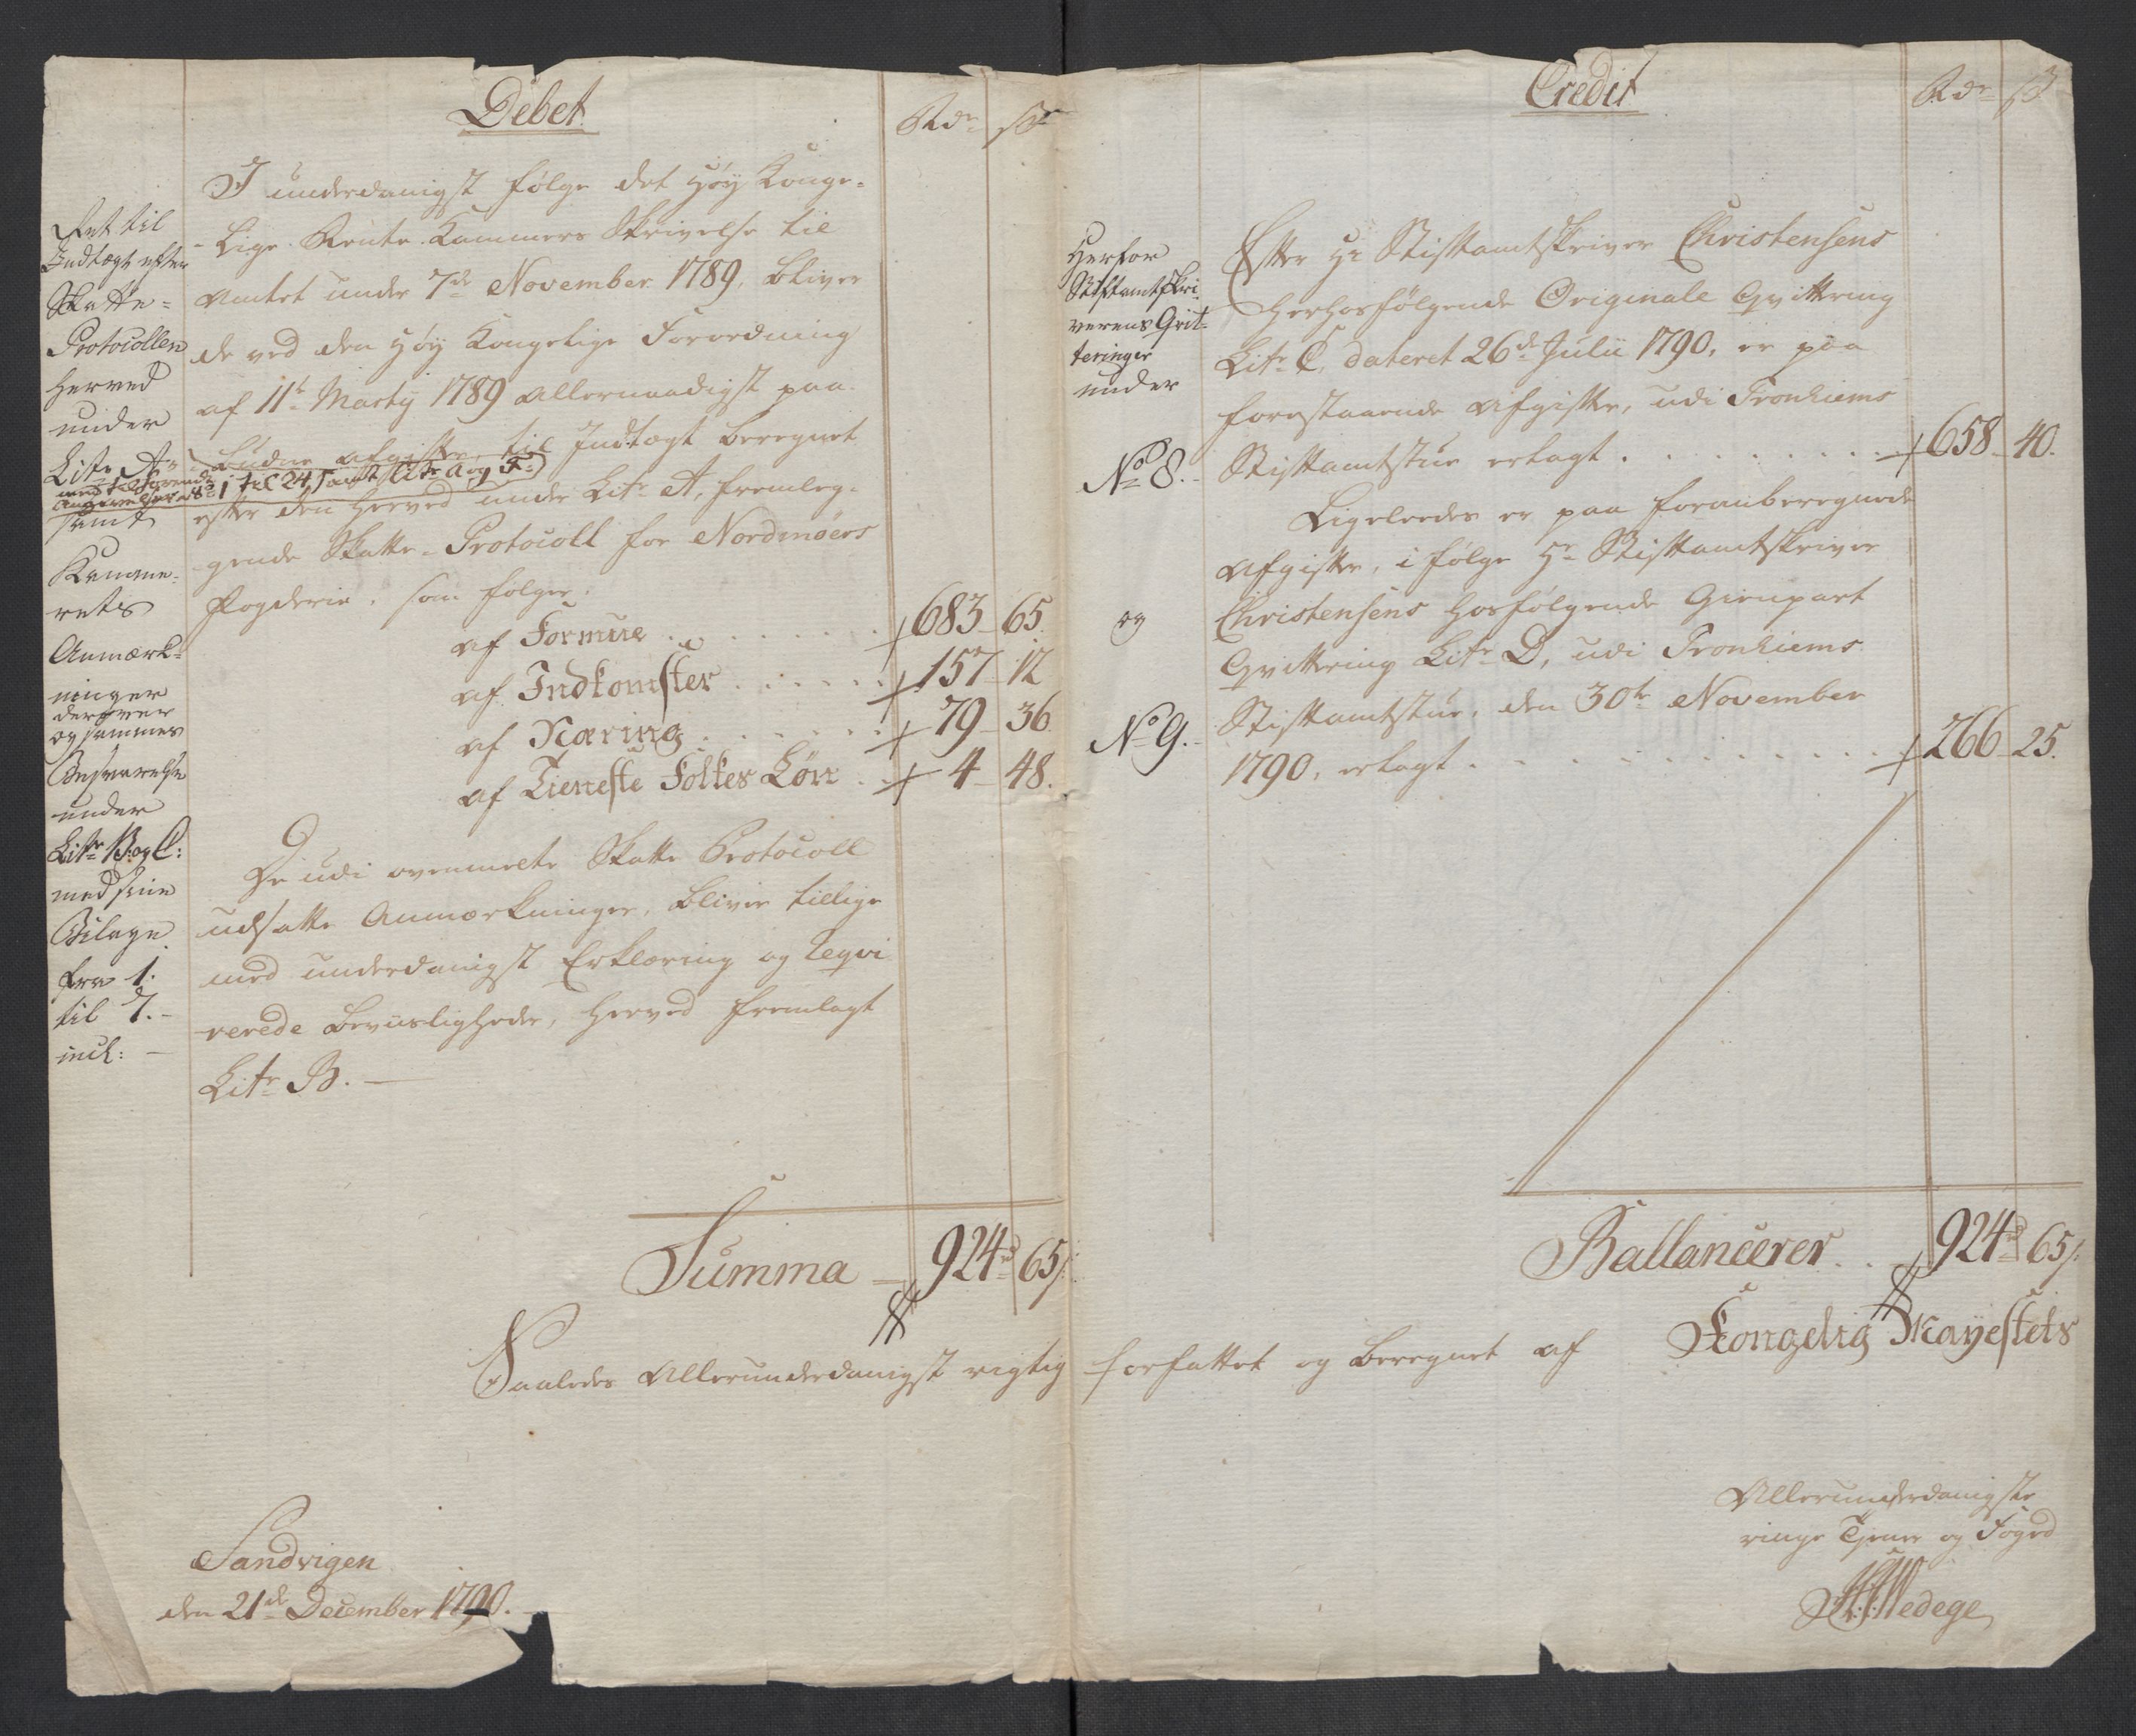 Debet
Rdr ſß
I underdanigst følge det høy Konge-
-lige Rente-Kammers Skrivelse til
Amtet under 7de November 1789, bliver
de ved den høy Kongelige Forordning
af 11te Martij 1789 allernaadigst paa-
budne afgifter, til Indtægt beregnet
efter den herved under Litr A, fremleg-
gende Skatte-Protocoll for Nordmøers
Fogderie, som følger:
af Formue . . . . . . 683 65.
af Indkomster . . . . . 157 12
af Næring . . . . . . 79 36.
af Tieneste Folkes Løn . 4 48.
De udi ovenmelte Skatte Protocoll
udsatte Anmærkninger, bliver tillige
med underdanigst Erklæring og reqvi-
rerede Beviisligheder, herved fremlagt
Litr B. —
Summa — 924rd 65ſ:
Ret til
Indtægt efter
Skatte-
Protocollen
herved
under
Litr A
med tilhørende
No 1 til 24, samt Litr a og F:
samt
Kamme-
rets
Anmærk-
ninger
derover
og sammes
Besvarelse
under
Litr B: og C:
med sine
Bilage
fra 1.
til 7.-
incl: —
Sandvigen
den 21de December 1790.
Credit
Rdr ſß
Efter Hr Stiftamtskriver Christensens
herhosfølgende Originale Qvittering
Litr C, dateret 26de Julii 1790, er paa
forestaaende Afgifter, udi Tronhiems
Stiftamtstue erlagt . . . . . . . 658 40.
Ligeledes er paa foranberegnede
Afgifter, i følge Hr Stiftamtskriver
Christensens hosfølgende Gienpart
Qvittering Litr D, udi Tronhiems
Stiftamtstue, den 30te November
1790, erlagt . . . . . . . . . 266 25.
Herfor
Stiftamtskri-
verens Qvit-
teringer
under
No 8.-
og
No 9.-
Ballancerer . . 924rd 65ſ:
Saaledes Allerunderdanigst rigtig forfattet og beregnet af Kongelig Mayestets
Allerunderdanigste
ringe Tjener og Foged
Wedege